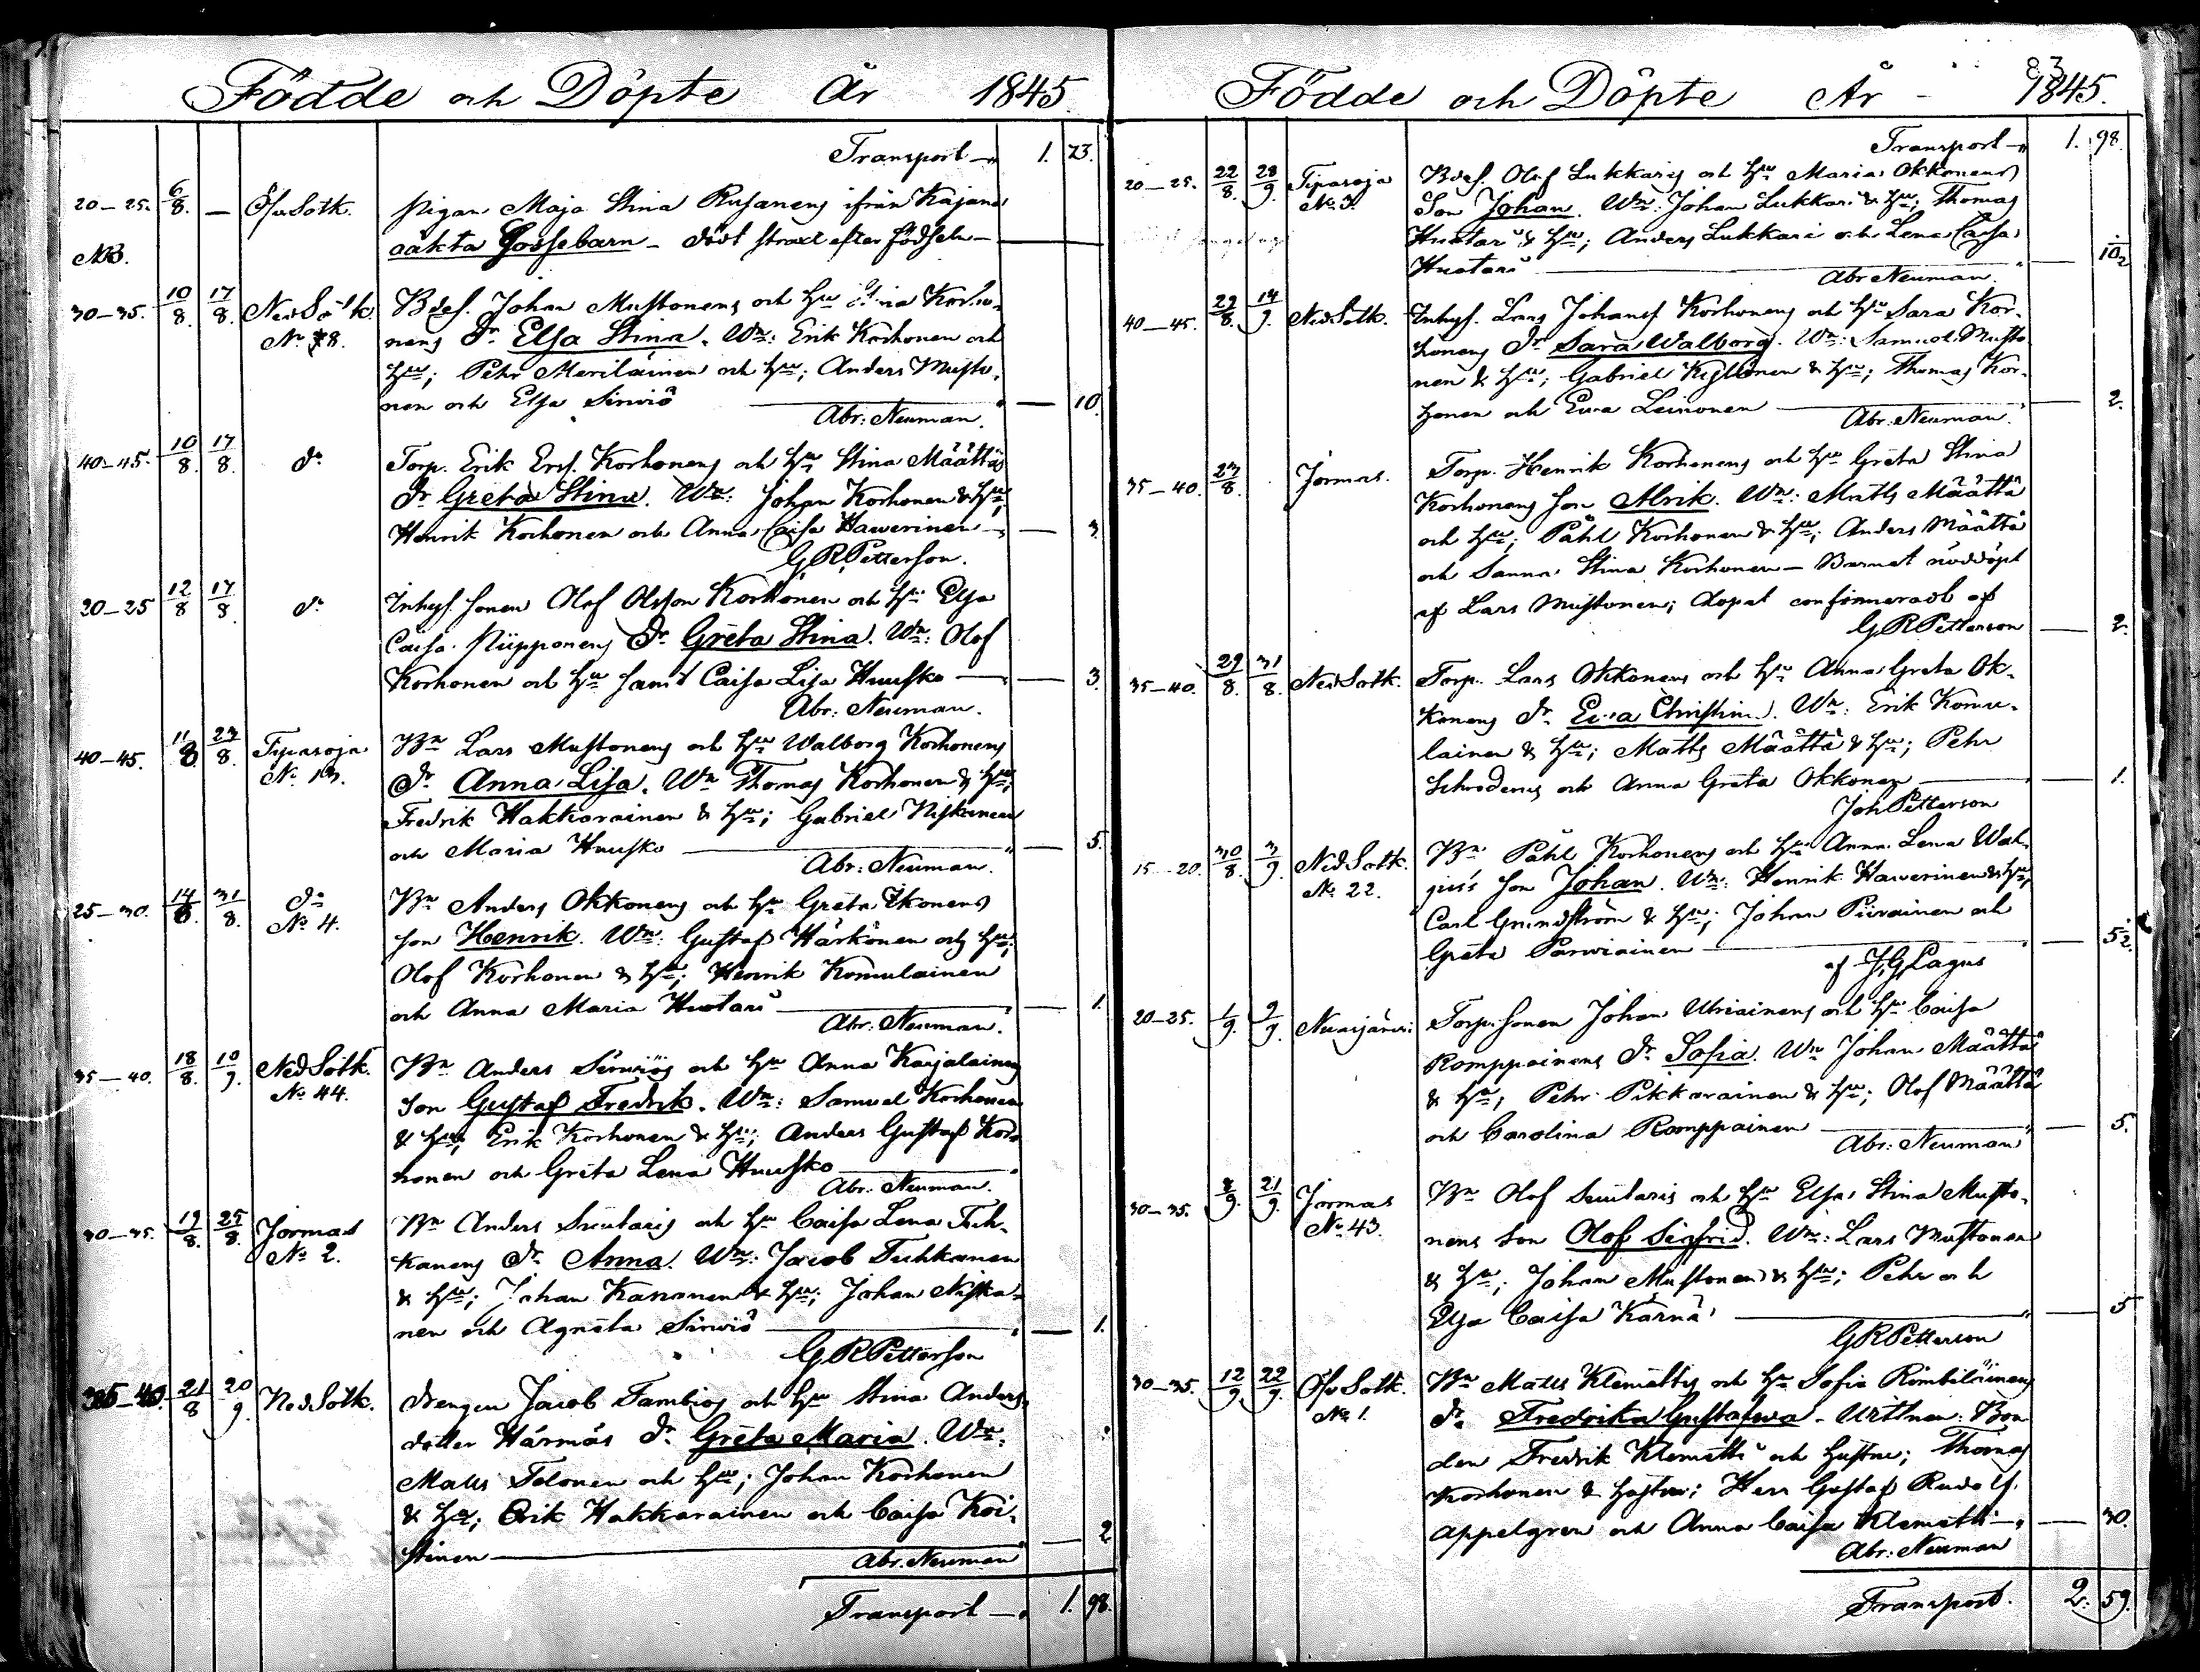 Födde och Döpte År 1845.
Transport 1. 73.
20–25. 6/8. — Öfv Sotk. Pigan Maja Stina Rusanens ifrån Kajana
oäkta Gossebarn – dödt straxt efter födseln –
NB.
30–35. 10/8. 17/8. Ned Sotk. Bdes. Johan Mustonens och hu Korho-
No 8. nens dr Elsa Stina. Wn: Erik Korhonen och
hu; Pehr Meriläinen och hu; Anders Musto-
nen och Elsa Sirviö — 10.
Abr: Neuman.
40–45. 10/8. 17/8. do Torp. Erik Ers. Korhonens och hu Stina Määttäs
dr Greta Stina. Wn: Johan Korhonen & hu;
Henrik Korhonen och Anna Caisa Hawerinen — 3
G R Petterson.
20–25 12/8 17/8 do Inhys. sonen Olof Olsson Korhonen och hu Elsa
Caisa Piipponens dr Greta Stina. Wn: Olof
Korhonen och hu samt Caisa Lisa Huusko — 3.
Abr: Neuman.
40–45. 11/8 23/8. Tipasoja Bn Lars Mustonens och hu Walborg Korhonens
No 13. dr Anna Lisa. Wn Thomas Korhonen & hu;
Fredrik Hakkarainen & hu; Gabriel Niskanen
och Maria Huusko — 5.
Abr: Neuman.
25–30. 14/8. 31/8. do Bn Anders Okkonens och hu Greta Ikonens
No 4. son Henrik. Wn: Gustaf Härkönen och hu;
Olof Korhonen & hu; Henrik Komulainen
och Anna Maria Huotari — 1.
Abr: Neuman.
35–40. 18/8. 10/9. Ned Sotk. Bn Anders Sirviös och hu Anna Karjalainens
No 44. son Gustaf Fredrik. Wn: Samuel Korhonen
& hu; Erik Korhonen & hu; Anders Gustaf Kor-
honen och Greta Lena Huusko
Abr: Neuman.
30–35. 19/8. 25/8. Jormas Bn Anders Suutaris och hu Caisa Lena Tuh-
No 2. kanens dr Anna. Wn: Jacob Tuhkanen
& hu; Johan Kananen & hu; Johan Niska-
nen och Agneta Sirviö — 1.
G R Petterson
35–40. 21/8 20/9 Ned Sotk. drengen Jacob Tambergs och hu Stina Anders-
dotter Härmäs dr Greta Maria. Wn:
Matts Tolonen och hu; Johan Korhonen
& hu; Erik Hakkarainen och Caisa Koi-
stinen — 2
Abr. Neuman
Transport 1. 98.
83
Födde och Döpte År 1845.
Transport 1. 98.
20–25. 22/8. 28/9. Tipasoja Bdes. Olof Lukkaris och hu Maria Okkonens
No 3. Son Johan. Wn: Johan Lukkari & hu; Thomas
Huotari & hu; Anders Lukkari och Lena Caisa
Huotari — 10
Abr Neuman.
40–45. 22/8. 14/9. Ned Sotk. Inhys. Lars Johans Korhonens och hu Sara Kor-
honens dr Sara Walborg. Wn: Samuel Musto
nen & hu; Gabriel Kyllönen & hu; Thomas Kor-
honen och Ewa Leinonen — 2.
Abr: Neuman.
35–40. 23/8. Jormas. Torp. Henrik Korhonens och hu Greta Stina
Korhonens son Alrik. Wn: Matts Määttä
och hu; Påhl Korhonen & hu; Anders Määttä
och Sanna Stina Korhonen – Barnet nöddöpt
af Lars Mustonen; dopet confirmeradt af
G R Petterson — 2.
35–40. 29/8. 31/8. Ned Sotk. Torp. Lars Okkonens och hu Anna Greta Ok-
konens dr Ewa Christina. Wn: Erik Komu-
lainen & hu; Matts Määttä & hu; Pehr
Schroderus och Anna Greta Okkonen — 1.
Joh Petterson
15–20. 30/8. 3/9. Ned Sotk. Bn Påhl Korhonens och hu Anna Lena Wal-
No 22. jus's son Johan. Wn: Henrik Hawerinen & hu;
Carl Grundström & hu; Johan Piirainen och
Greta Parwiainen — 5
af J G Lagus
20–25. 1/9. 9/9. Nuasjärvi Torp. sonen Johan Uhriainens och hu Caisa
Romppainens dr Sofia. Wn Johan Määttä
& hu; Pehr Pikkarainen & hu; Olof Määttä
och Carolina Romppainen — 5.
Abr: Neuman
30–35. 8/9. 21/9. Jormas Bn Olof Suutaris och hu Elsa Stina Musto-
No 43. nens Son Olof Sigfrid. Wn: Lars Mustonen
& hu; Johan Mustonen & hu; Pehr och
Elsa Caisa Kärnä — 5
G R Petterson
30–35. 12/9. 22/9. Öfv Sotk. Bn Matts Klemettis och hu Sofia Rimbiläinens
No 1. dr Fredrika Gustafwa – Wittnen: Bon
den Fredrik Klemetti och hustru; Thomas
Korhonen & hustru; Herr Gustaf Rudolf
Appelgren och Anna Caisa Klemetti — 30.
Abr: Neuman
Transport. 2. 59.